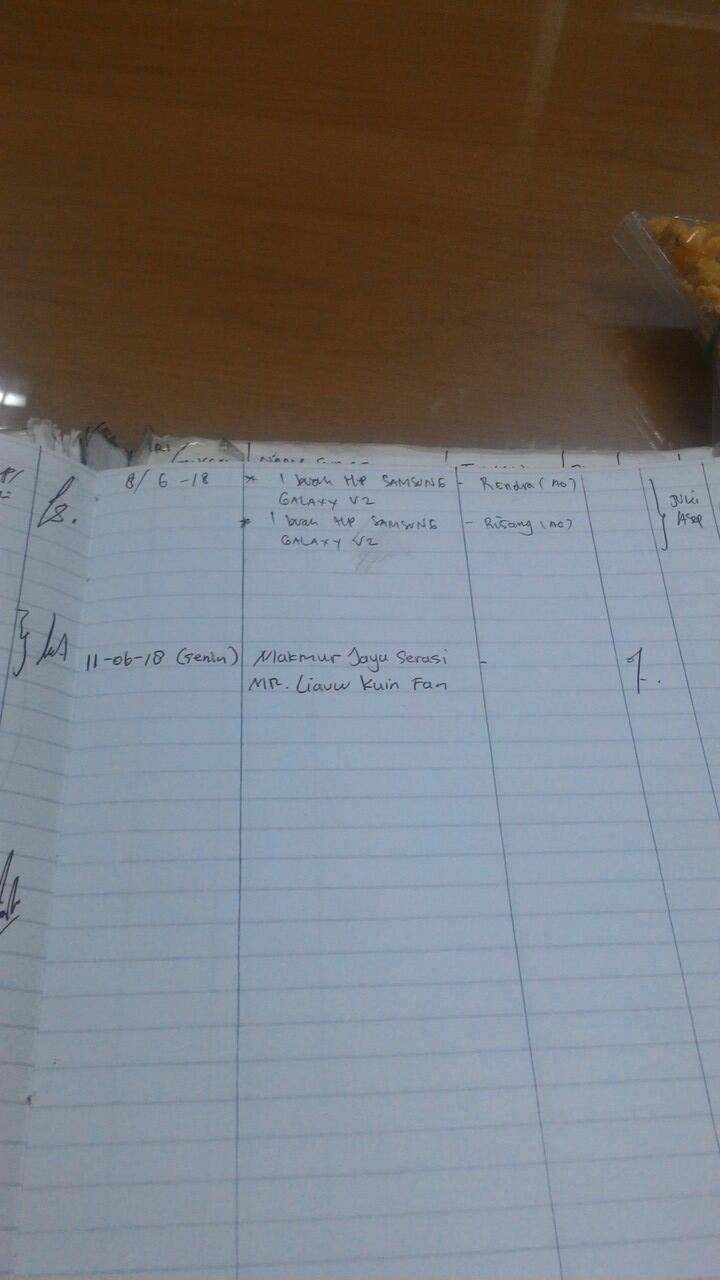 8/ 6 -18 * 1 buah HP SAMSUNG - Rendra (AO)
GALAXY V2
* 1 buah HP SAMSUNG - Risang (AO)
GALAXY V2
Juki
Asep
11-06-18 (senin) Makmur Jaya Serasi -
MR. Liauw Kuin Fan